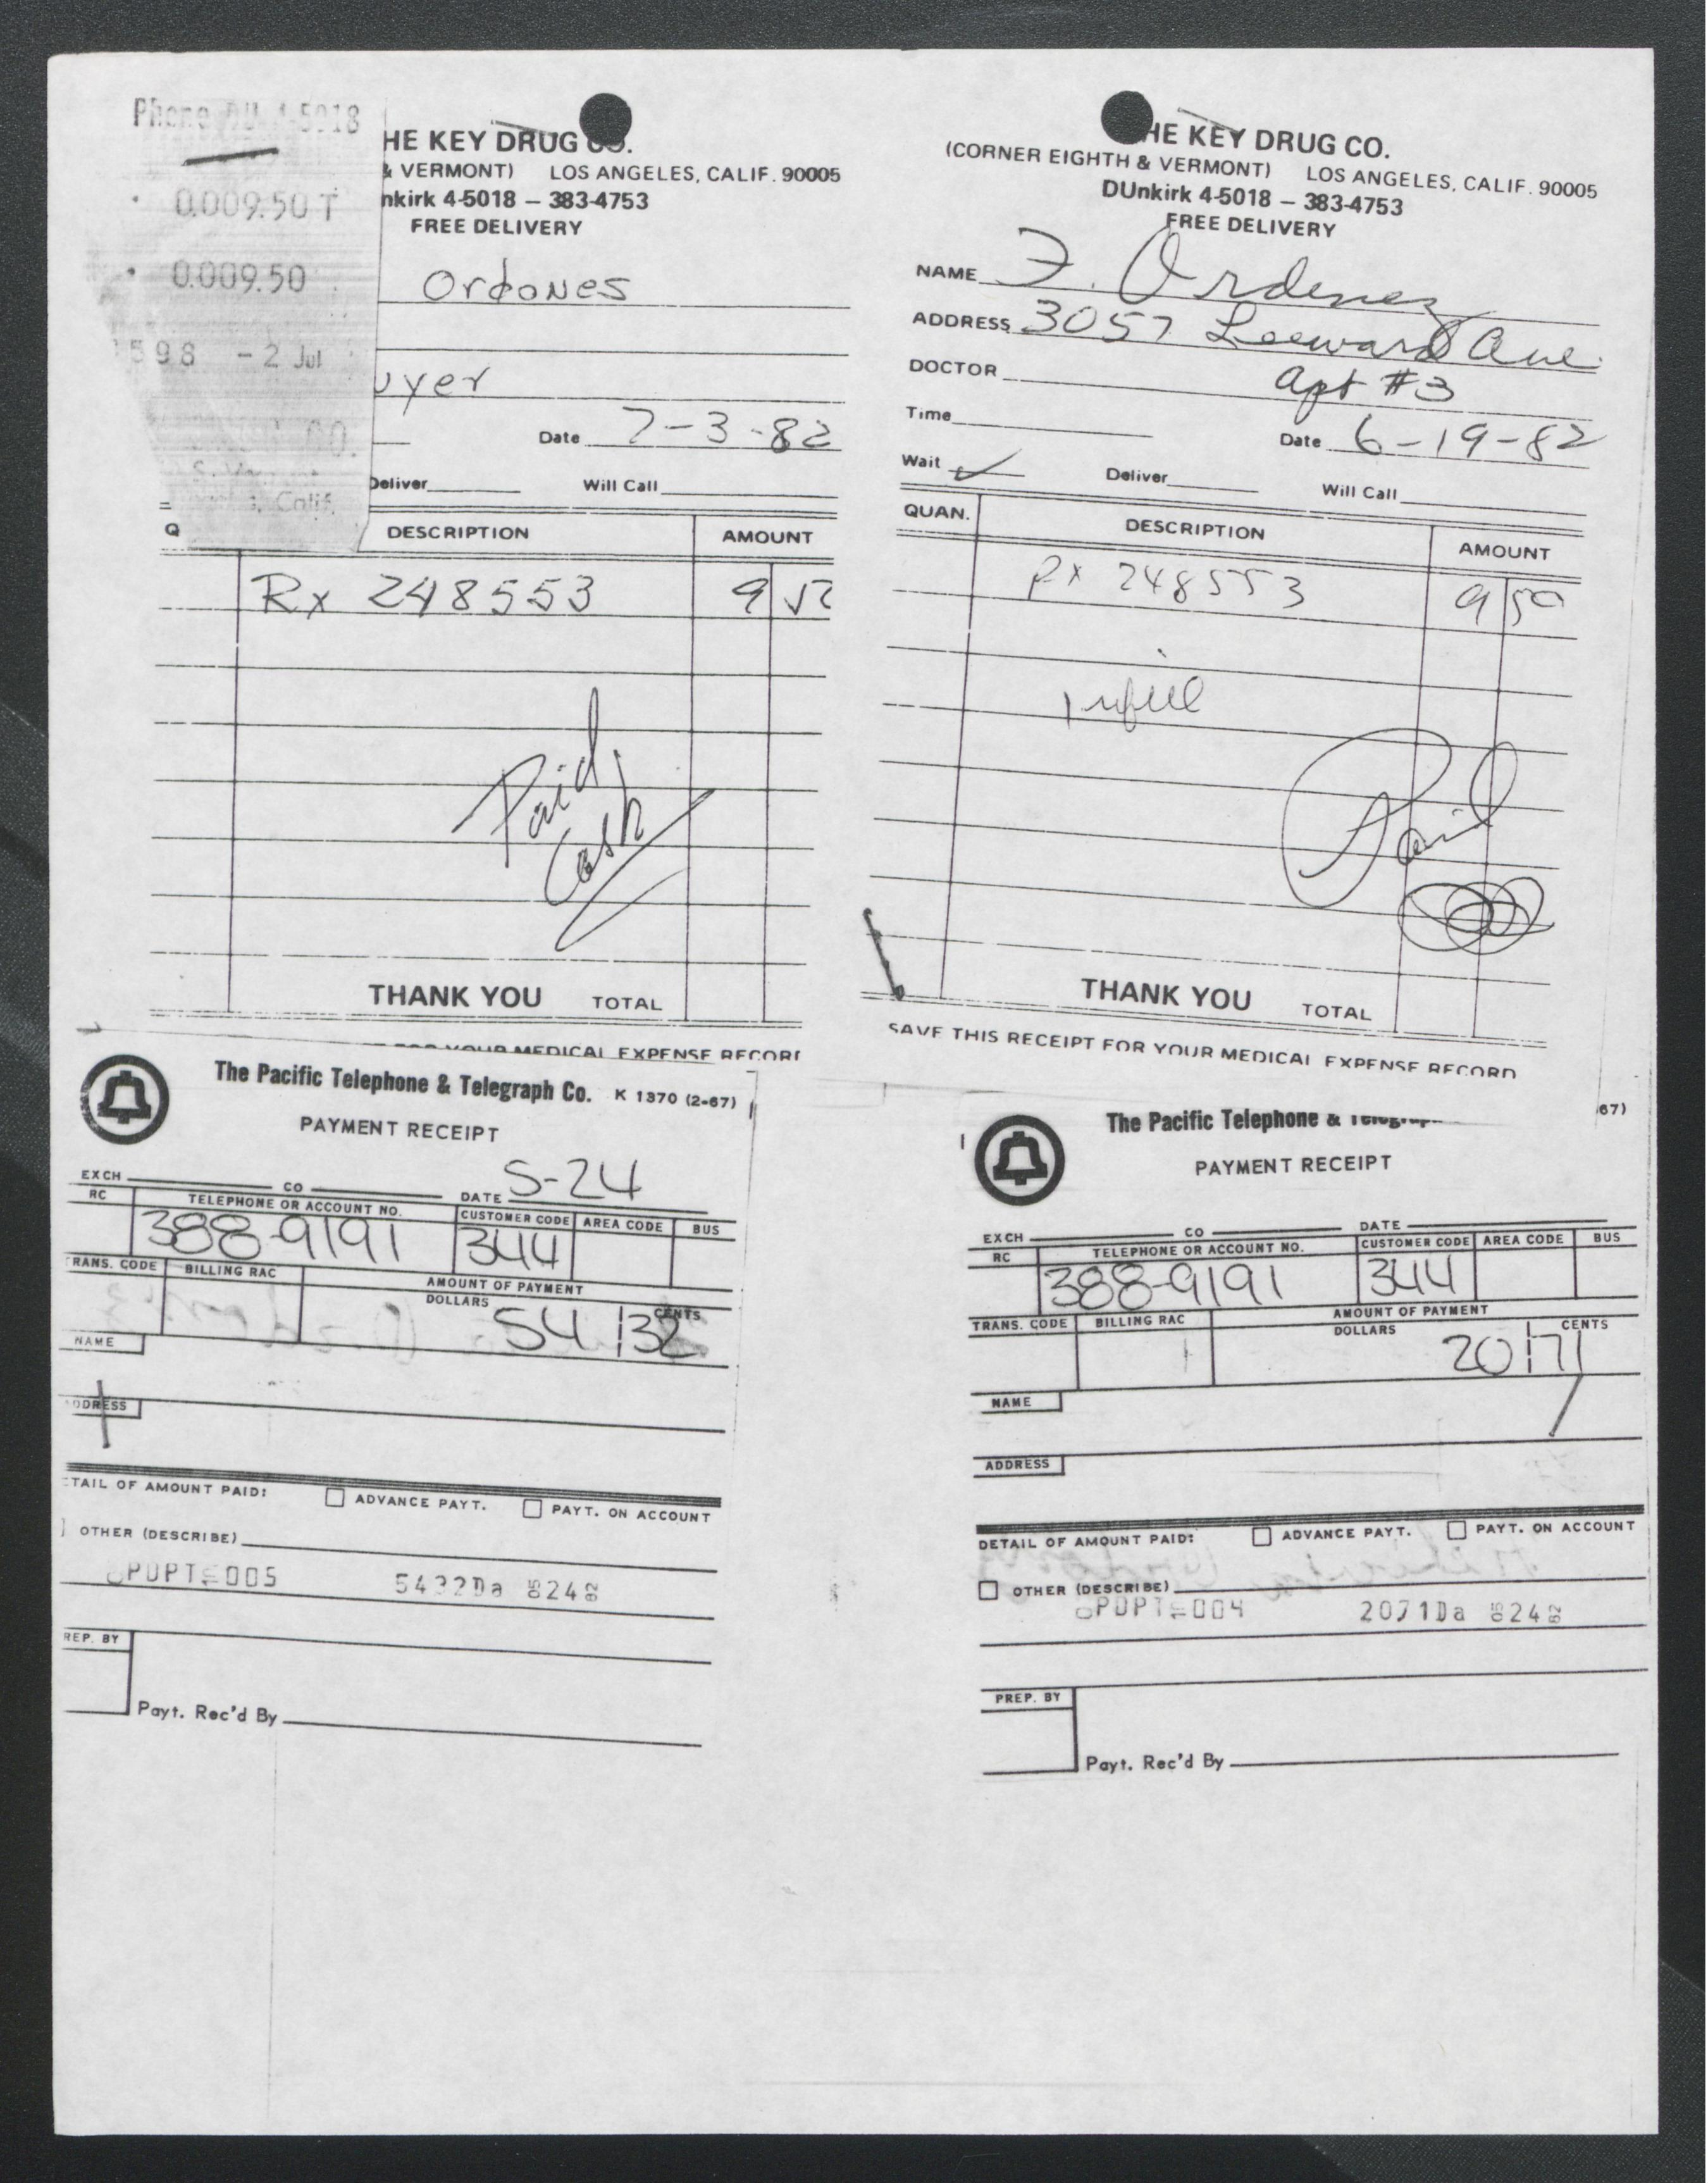 Phone DU 4-5018
0.009.50 T
0.009.50
598 - 2 Jul
CO.
S.
Calif.
HE KEY DRUG CO.
& VERMONT) LOS ANGELES, CALIF. 90005
nkirk 4-5018 – 383-4753
FREE DELIVERY
Ordones
uyer
Date 7-3-82
Deliver Will Call
Q DESCRIPTION AMOUNT
Rx 248553 9
Paid
Cash
THANK YOU TOTAL
FOR YOUR MEDICAL EXPENSE RECOR
HE KEY DRUG CO.
(CORNER EIGHTH & VERMONT) LOS ANGELES, CALIF. 90005
DUnkirk 4-5018 – 383-4753
FREE DELIVERY
NAME F. Ordenez
ADDRESS 3057 Leeward Ave.
DOCTOR Apt #3
Time
Date 6-19-82
Wait ✓ Deliver Will Call
QUAN. DESCRIPTION AMOUNT
Rx 248553 9 50
1 refill
Paid
THANK YOU TOTAL
SAVE THIS RECEIPT FOR YOUR MEDICAL EXPENSE RECORD
The Pacific Telephone & Telegraph Co. K 1370 (2-67)
PAYMENT RECEIPT
EXCH CO DATE 5-24
RC TELEPHONE OR ACCOUNT NO. CUSTOMER CODE AREA CODE BUS
388-9191 344
TRANS. CODE BILLING RAC AMOUNT OF PAYMENT
DOLLARS CENTS
54 32
NAME
ADDRESS
TAIL OF AMOUNT PAID: ADVANCE PAYT. PAYT. ON ACCOUNT
OTHER (DESCRIBE)
PDPT 005 5432Da 05 24 82
REP. BY
Payt. Rec'd By
67)
The Pacific Telephone & Telegrap
PAYMENT RECEIPT
EXCH CO DATE
RC TELEPHONE OR ACCOUNT NO. CUSTOMER CODE AREA CODE BUS
388-9191 344
TRANS. CODE BILLING RAC AMOUNT OF PAYMENT
DOLLARS CENTS
20 71
NAME
ADDRESS
DETAIL OF AMOUNT PAID: ADVANCE PAYT. PAYT. ON ACCOUNT
OTHER (DESCRIBE)
PDPT 004 2071Da 05 24 82
PREP. BY
Payt. Rec'd By